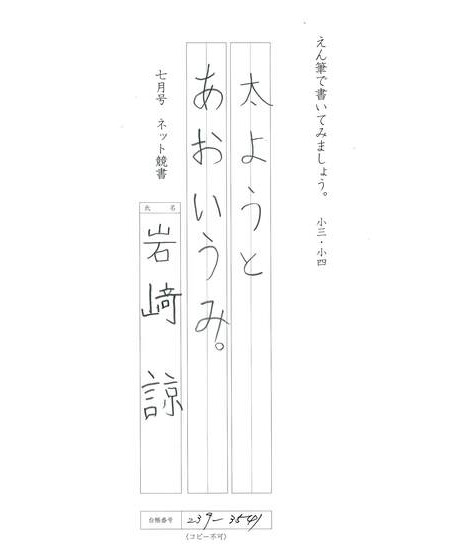 えん筆で書いてみましょう。 小三・小四
太ようと
あおいうみ。
七月号 ネット競書
氏 名
岩﨑 諒
台帳番号 239-3541
(コピー不可)